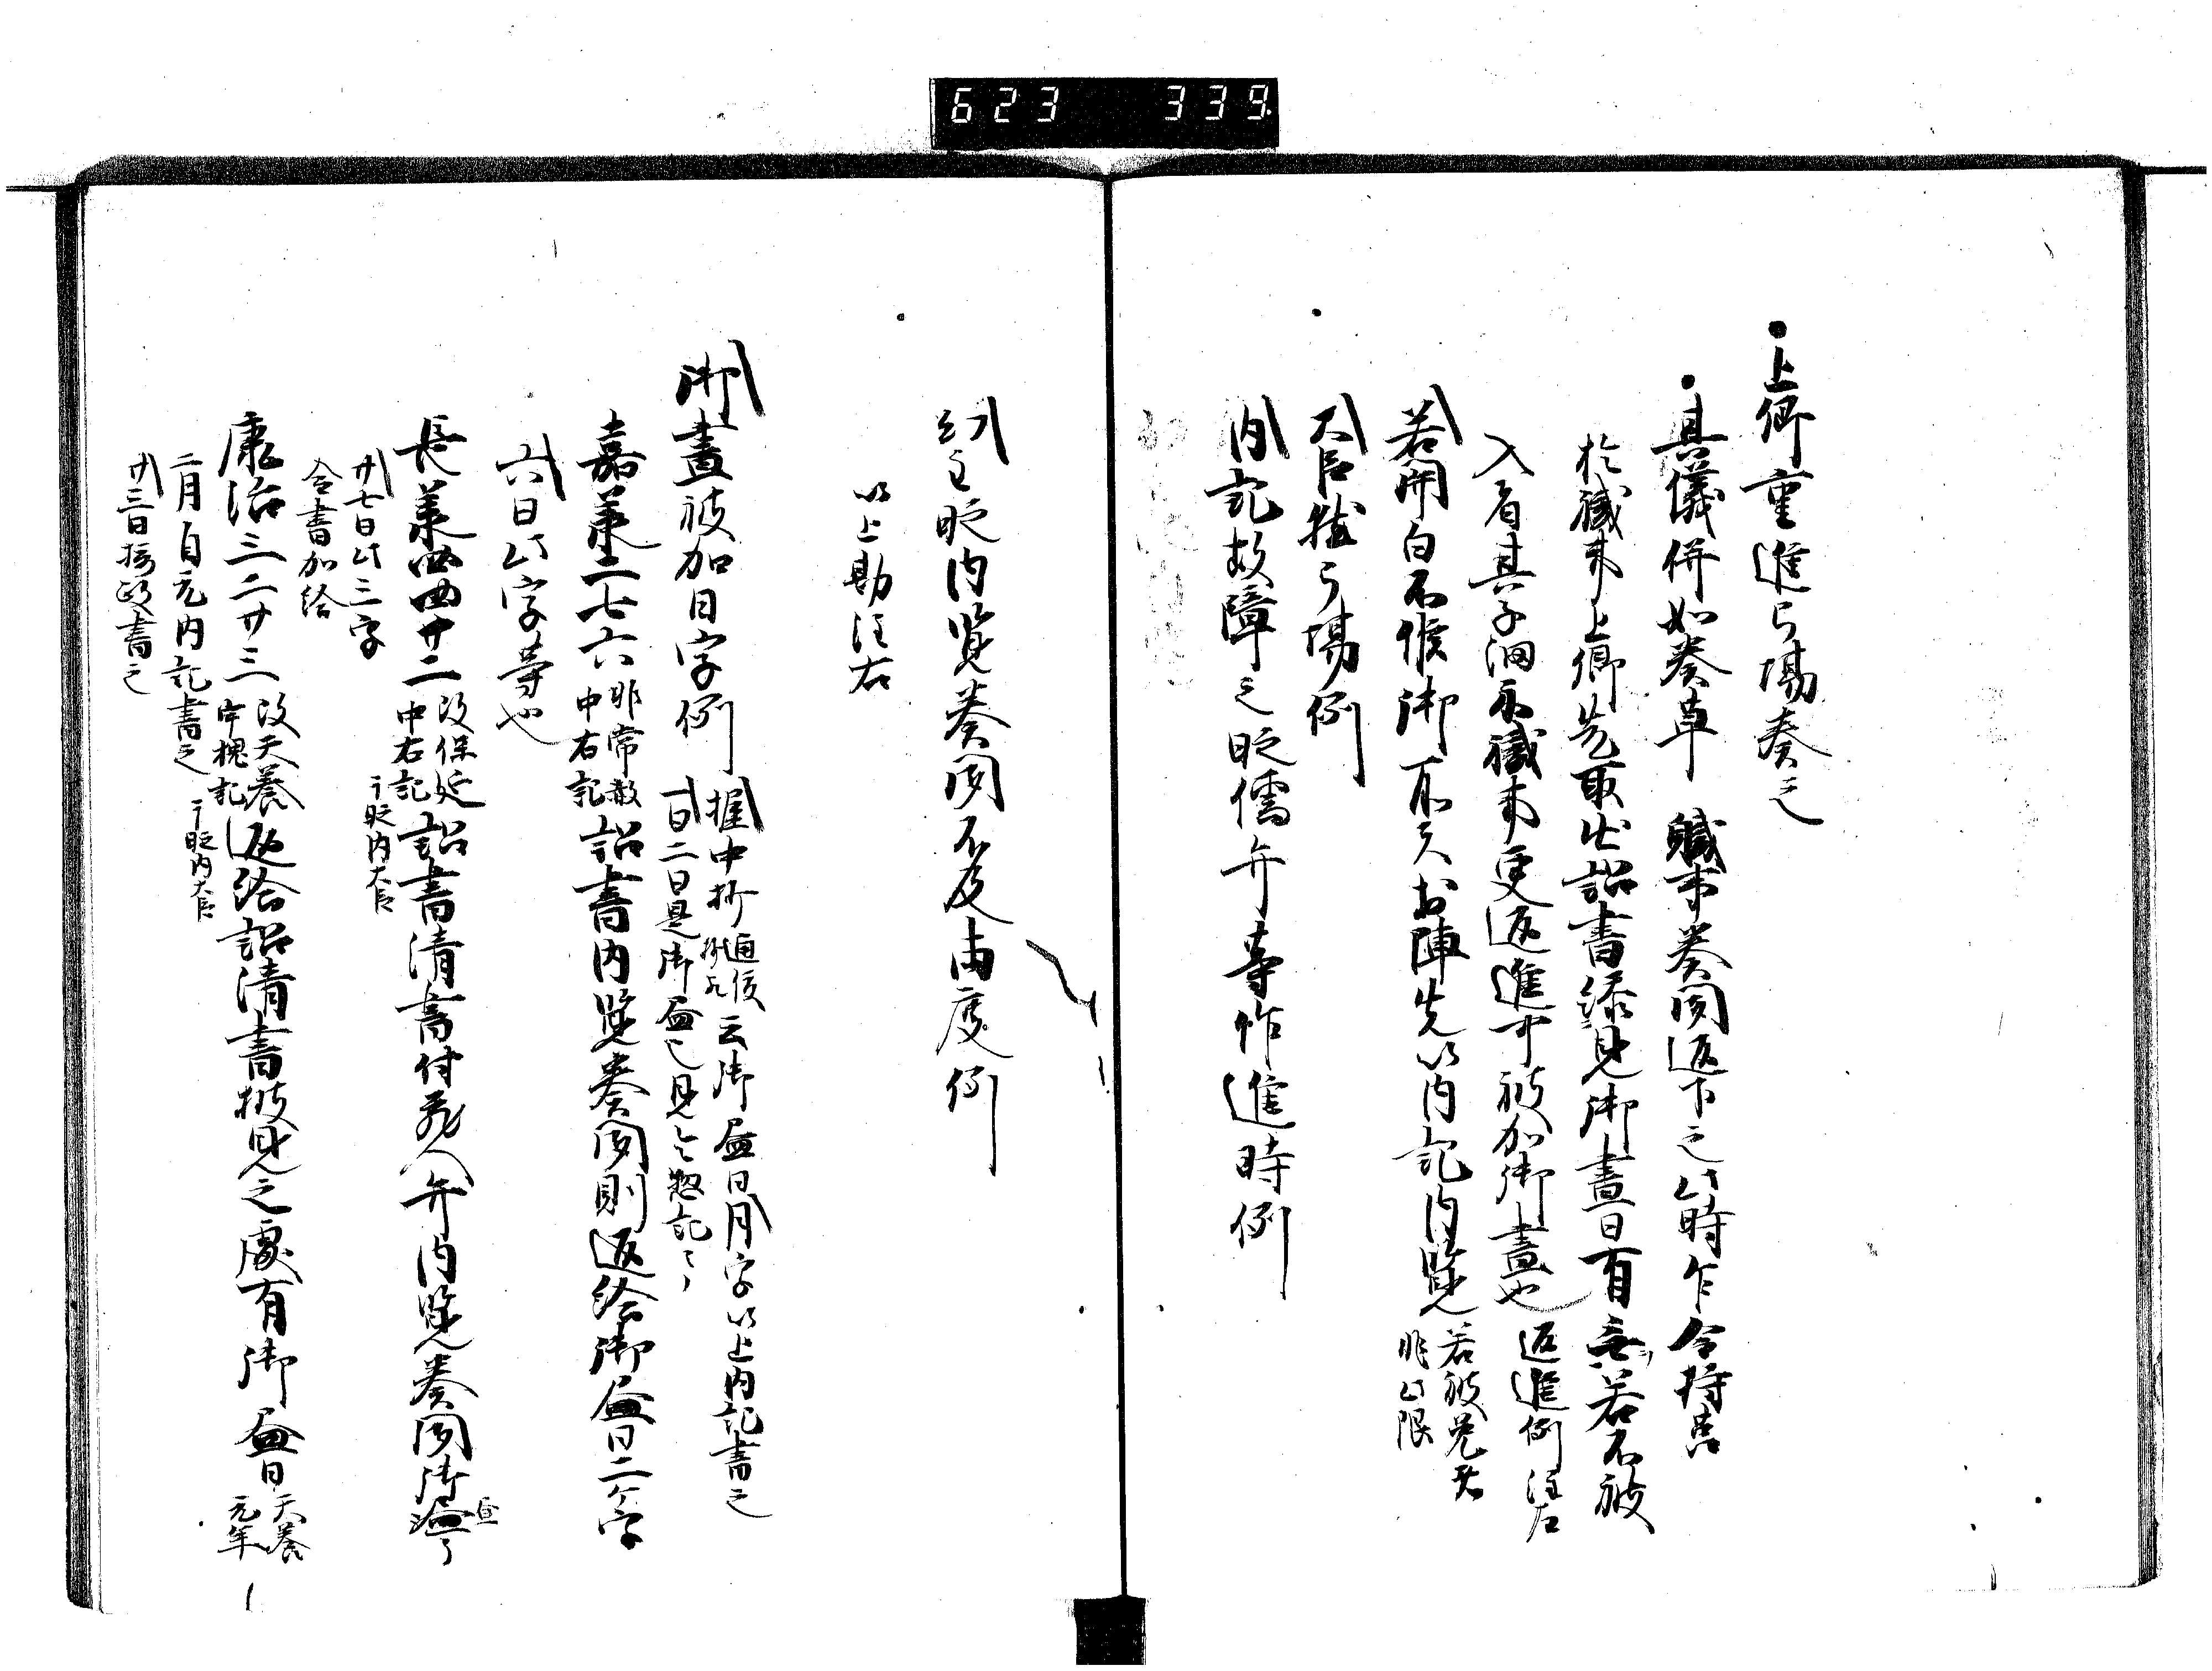 623 339
上卿重進弓場奏之
其儀併如奏草 職事奏聞返下之此時乍令持筥
於職事上卿先取出詔書添見御畫日有無若不被
入者其子細示職事更返進可被加御畫也 返進例注左
若關白不候御所之人於陣先以内記内覽 若被免者 非此限
大臣雖弓場例
内記故障之時儒弁等作進時例
幼主時内覽奏聞不及由度例
以上勘注右
御畫被加日字例 握中抄 通俊 抄九 云御畫日月字以上内記書之
一日二日是御畫也見令惣記云々
嘉承二七六 非常赦 中右記 詔書内覽奏聞則返給御畫日二字
六日此字等也
長承四四廿二 改保延 中右記 詔書清書付藏人弁内覽奏聞御畫了
于時内大臣
廿七日此三字
令書加給
康治三二廿三 改天養 宇槐記 返給詔清書披見之處有御畫日 天養元年
二月自元内記書之 于時内大臣
廿三日攝政書之